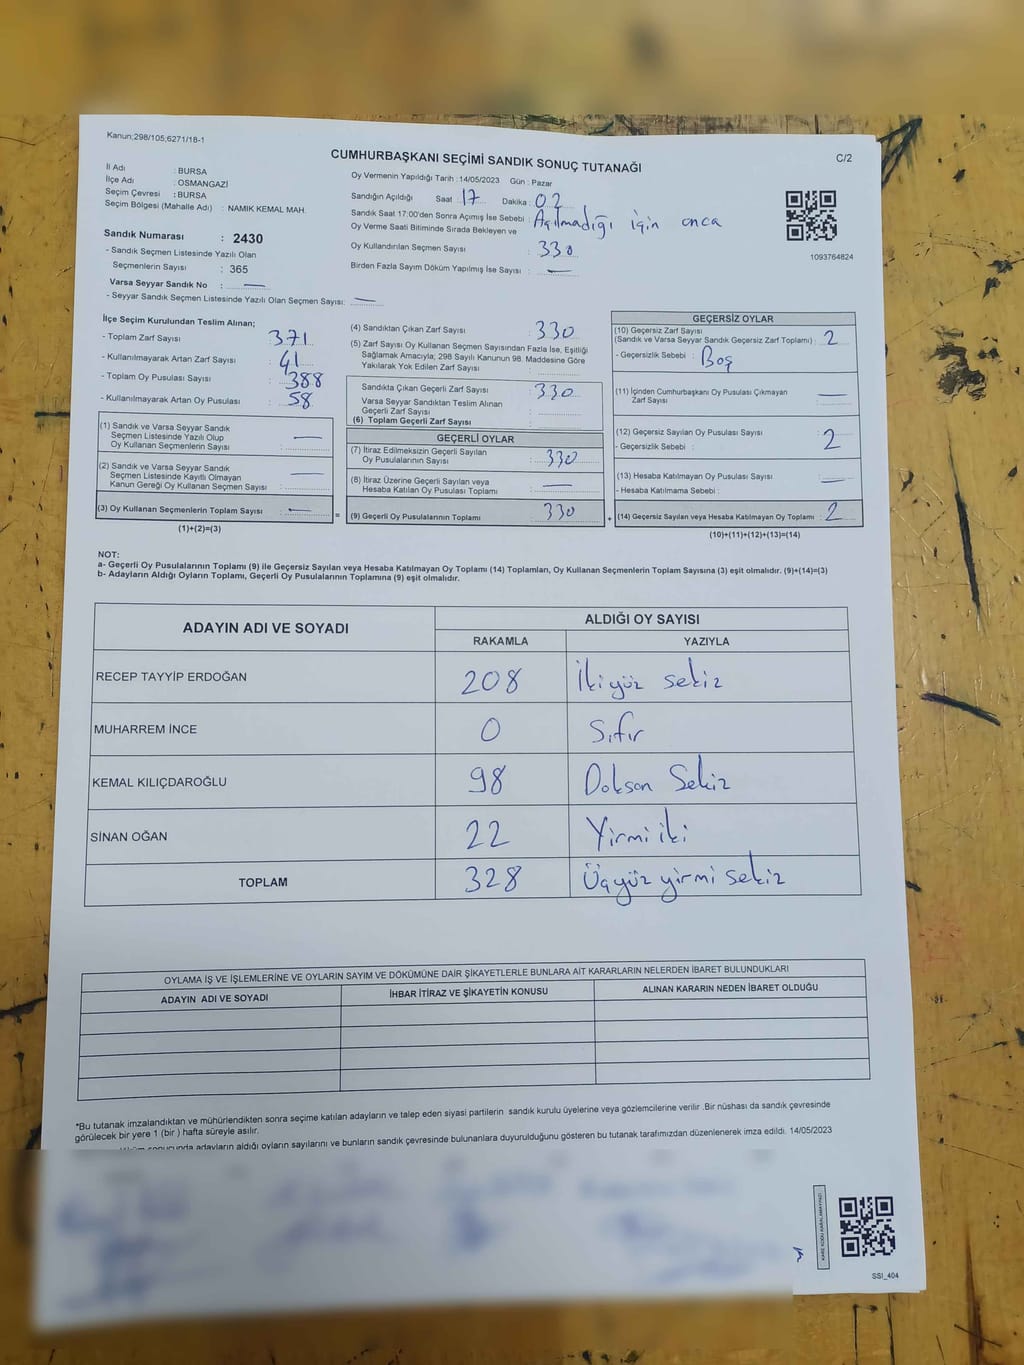 Kanun;298/105;6271/18-1
CUMHURBAŞKANI SEÇİMİ SANDIK SONUÇ TUTANAĞI
C/2
İl Adı : BURSA
İlçe Adı : OSMANGAZİ
Seçim Çevresi : BURSA
Seçim Bölgesi (Mahalle Adı) : NAMIK KEMAL MAH.
Sandık Numarası : 2430
- Sandık Seçmen Listesinde Yazılı Olan
Seçmenlerin Sayısı : 365
Varsa Seyyar Sandık No : —
- Seyyar Sandık Seçmen Listesinde Yazılı Olan Seçmen Sayısı: —
Oy Vermenin Yapıldığı Tarih : 14/05/2023 Gün : Pazar
Sandığın Açıldığı Saat 17 Dakika : 02
Sandık Saat 17:00'den Sonra Açımış İse Sebebi : Açılmadığı için onca
Oy Verme Saati Bitiminde Sırada Bekleyen ve
Oy Kullandırılan Seçmen Sayısı : 330
Birden Fazla Sayım Döküm Yapılmış İse Sayısı : —
1093764824
İlçe Seçim Kurulundan Teslim Alınan;
- Toplam Zarf Sayısı : 371
- Kullanılmayarak Artan Zarf Sayısı : 41
- Toplam Oy Pusulası Sayısı : 388
- Kullanılmayarak Artan Oy Pusulası : 58
(1) Sandık ve Varsa Seyyar Sandık
Seçmen Listesinde Yazılı Olup
Oy Kullanan Seçmenlerin Sayısı : —
(2) Sandık ve Varsa Seyyar Sandık
Seçmen Listesinde Kayıtlı Olmayan
Kanun Gereği Oy Kullanan Seçmen Sayısı : —
(3) Oy Kullanan Seçmenlerin Toplam Sayısı : —
(1)+(2)=(3)
=
(4) Sandıktan Çıkan Zarf Sayısı : 330
(5) Zarf Sayısı Oy Kullanan Seçmen Sayısından Fazla İse, Eşitliği
Sağlamak Amacıyla; 298 Sayılı Kanunun 98. Maddesine Göre
Yakılarak Yok Edilen Zarf Sayısı :
Sandıkta Çıkan Geçerli Zarf Sayısı : 330
Varsa Seyyar Sandıktan Teslim Alınan
Geçerli Zarf Sayısı :
(6) Toplam Geçerli Zarf Sayısı :
GEÇERLİ OYLAR
(7) İtiraz Edilmeksizin Geçerli Sayılan
Oy Pusulalarının Sayısı : 330
(8) İtiraz Üzerine Geçerli Sayılan veya
Hesaba Katılan Oy Pusulası Toplamı : —
(9) Geçerli Oy Pusulalarının Toplamı : 330
+
GEÇERSİZ OYLAR
(10) Geçersiz Zarf Sayısı
(Sandık ve Varsa Seyyar Sandık Geçersiz Zarf Toplamı) : 2
- Geçersizlik Sebebi : Boş
(11) İçinden Cumhurbaşkanı Oy Pusulası Çıkmayan
Zarf Sayısı : —
(12) Geçersiz Sayılan Oy Pusulası Sayısı : 2
- Geçersizlik Sebebi :
(13) Hesaba Katılmayan Oy Pusulası Sayısı : —
- Hesaba Katılmama Sebebi :
(14) Geçersiz Sayılan veya Hesaba Katılmayan Oy Toplamı : 2
(10)+(11)+(12)+(13)=(14)
NOT:
a- Geçerli Oy Pusulalarının Toplamı (9) ile Geçersiz Sayılan veya Hesaba Katılmayan Oy Toplamı (14) Toplamları, Oy Kullanan Seçmenlerin Toplam Sayısına (3) eşit olmalıdır. (9)+(14)=(3)
b- Adayların Aldığı Oyların Toplamı, Geçerli Oy Pusulalarının Toplamına (9) eşit olmalıdır.
ADAYIN ADI VE SOYADI
ALDIĞI OY SAYISI
RAKAMLA YAZIYLA
RECEP TAYYİP ERDOĞAN 208 İkiyüz sekiz
MUHARREM İNCE 0 Sıfır
KEMAL KILIÇDAROĞLU 98 Doksan Sekiz
SİNAN OĞAN 22 Yirmi iki
TOPLAM 328 Üçyüz yirmi sekiz
OYLAMA İŞ VE İŞLEMLERİNE VE OYLARIN SAYIM VE DÖKÜMÜNE DAİR ŞİKAYETLERLE BUNLARA AİT KARARLARIN NELERDEN İBARET BULUNDUKLARI
ADAYIN ADI VE SOYADI İHBAR İTİRAZ VE ŞİKAYETİN KONUSU ALINAN KARARIN NEDEN İBARET OLDUĞU
*Bu tutanak imzalandıktan ve mühürlendikten sonra seçime katılan adayların ve talep eden siyasi partilerin sandık kurulu üyelerine veya gözlemcilerine verilir .Bir nüshası da sandık çevresinde
görülecek bir yere 1 (bir ) hafta süreyle asılır.
sonucunda adayların aldığı oyların sayılarını ve bunların sandık çevresinde bulunanlara duyurulduğunu gösteren bu tutanak tarafımızdan düzenlenerek imza edildi. 14/05/2023
KARE KODU KARALAMAYINIZ!
SSI_404